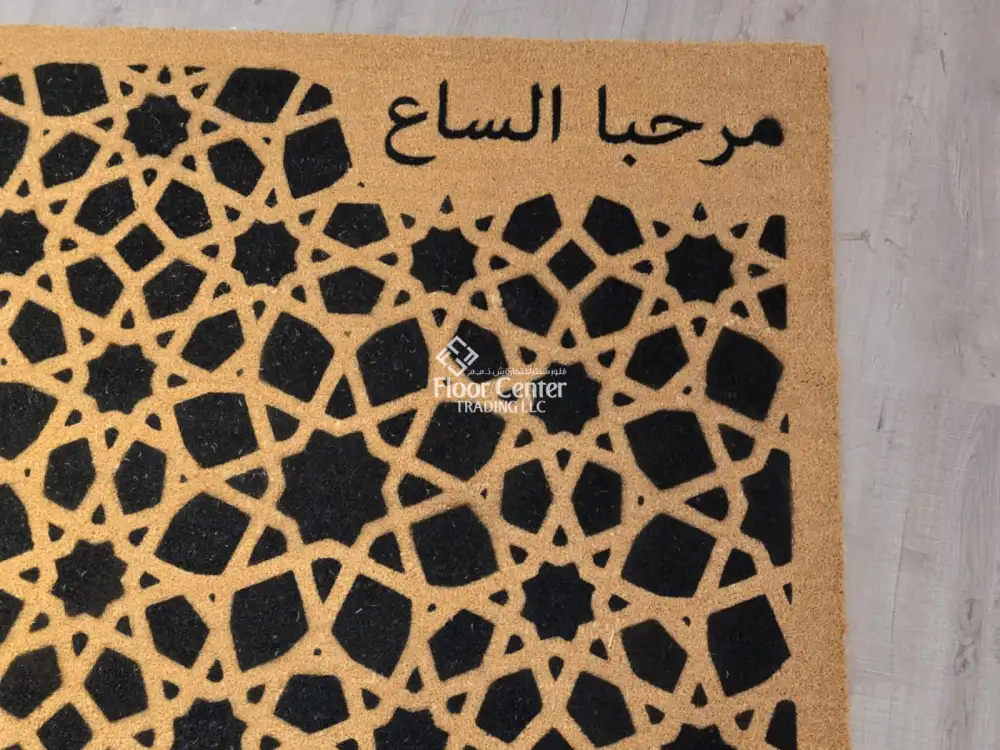 مرحبا الساع
فلور سنتر للتجارة ش.ذ.م.م
Floor Center
TRADING LLC